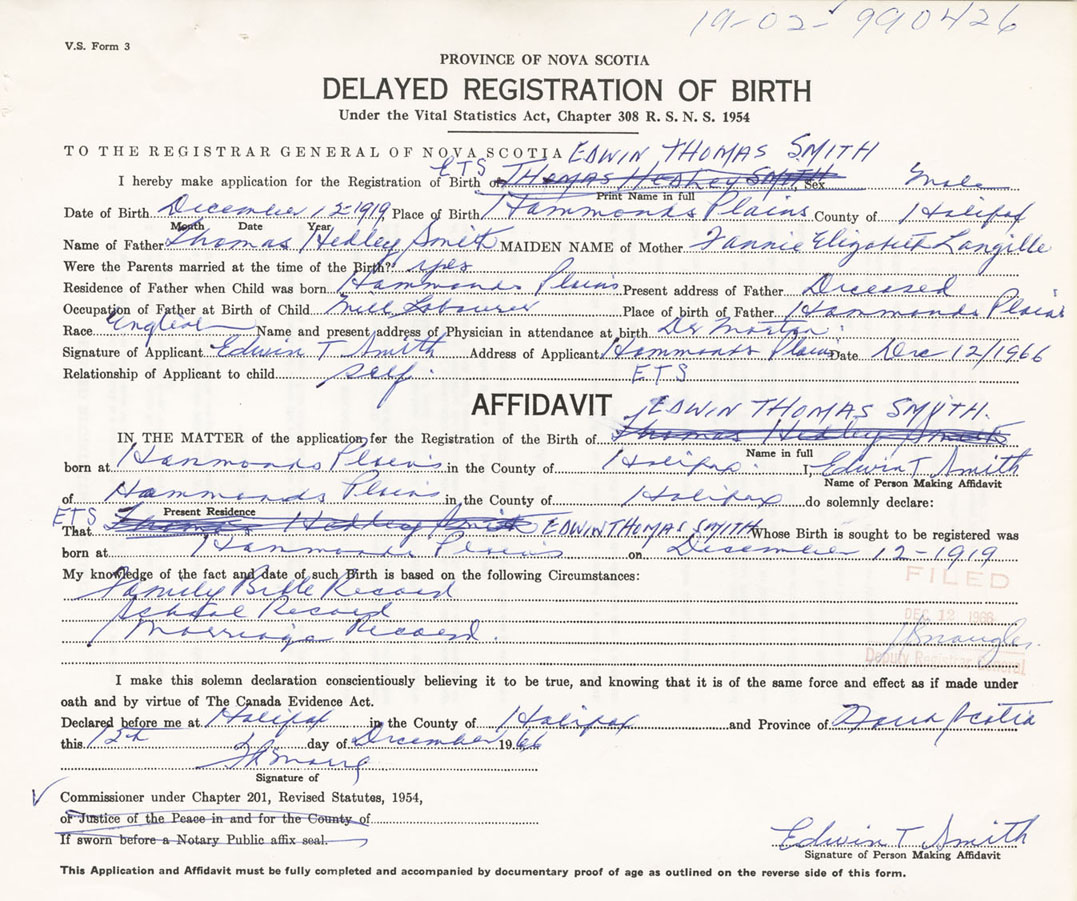 19-02- 990426
V.S. Form 3
PROVINCE OF NOVA SCOTIA
DELAYED REGISTRATION OF BIRTH
Under the Vital Statistics Act, Chapter 308 R. S. N. S. 1954
TO THE REGISTRAR GENERAL OF NOVA SCOTIA EDWIN THOMAS SMITH
I hereby make application for the Registration of Birth of ETS Thomas Hedley Smith Sex Male
Print Name in full
Date of Birth December 12 1919 Place of Birth Hammonds Plains County of Halifax
Month Date Year
Name of Father Thomas Hedley Smith MAIDEN NAME of Mother Fannie Elizabeth Langille
Were the Parents married at the time of the Birth? yes
Residence of Father when Child was born Hammonds Plains Present address of Father Deceased
Occupation of Father at Birth of Child Mill Labourer Place of birth of Father Hammonds Plains
Race English Name and present address of Physician in attendance at birth Dr Morton
Signature of Applicant Edwin T Smith Address of Applicant Hammonds Plains Date Dec 12/1966
Relationship of Applicant to child self. E.T.S
AFFIDAVIT EDWIN THOMAS SMITH.
IN THE MATTER of the application for the Registration of the Birth of Thomas Hedley Smith
Name in full
born at Hammonds Plains in the County of Halifax. I, Edwin T Smith
Name of Person Making Affidavit
of Hammonds Plains in the County of Halifax do solemnly declare:
Present Residence
ETS That Thomas Hedley Smith EDWIN THOMAS SMITH Whose Birth is sought to be registered was
born at Hammonds Plains on December 12-1919
My knowledge of the fact and date of such Birth is based on the following Circumstances:
FILED
Family Bible Record
School Record
DEC 13 1966
Marriage Record.
Deputy Registrar General
I make this solemn declaration conscientiously believing it to be true, and knowing that it is of the same force and effect as if made under
oath and by virtue of The Canada Evidence Act.
Declared before me at Halifax in the County of Halifax and Province of Nova Scotia
this 12th day of December 1966
Signature of
Commissioner under Chapter 201, Revised Statutes, 1954,
or Justice of the Peace in and for the County of
If sworn before a Notary Public affix seal.
Edwin T Smith
Signature of Person Making Affidavit
This Application and Affidavit must be fully completed and accompanied by documentary proof of age as outlined on the reverse side of this form.